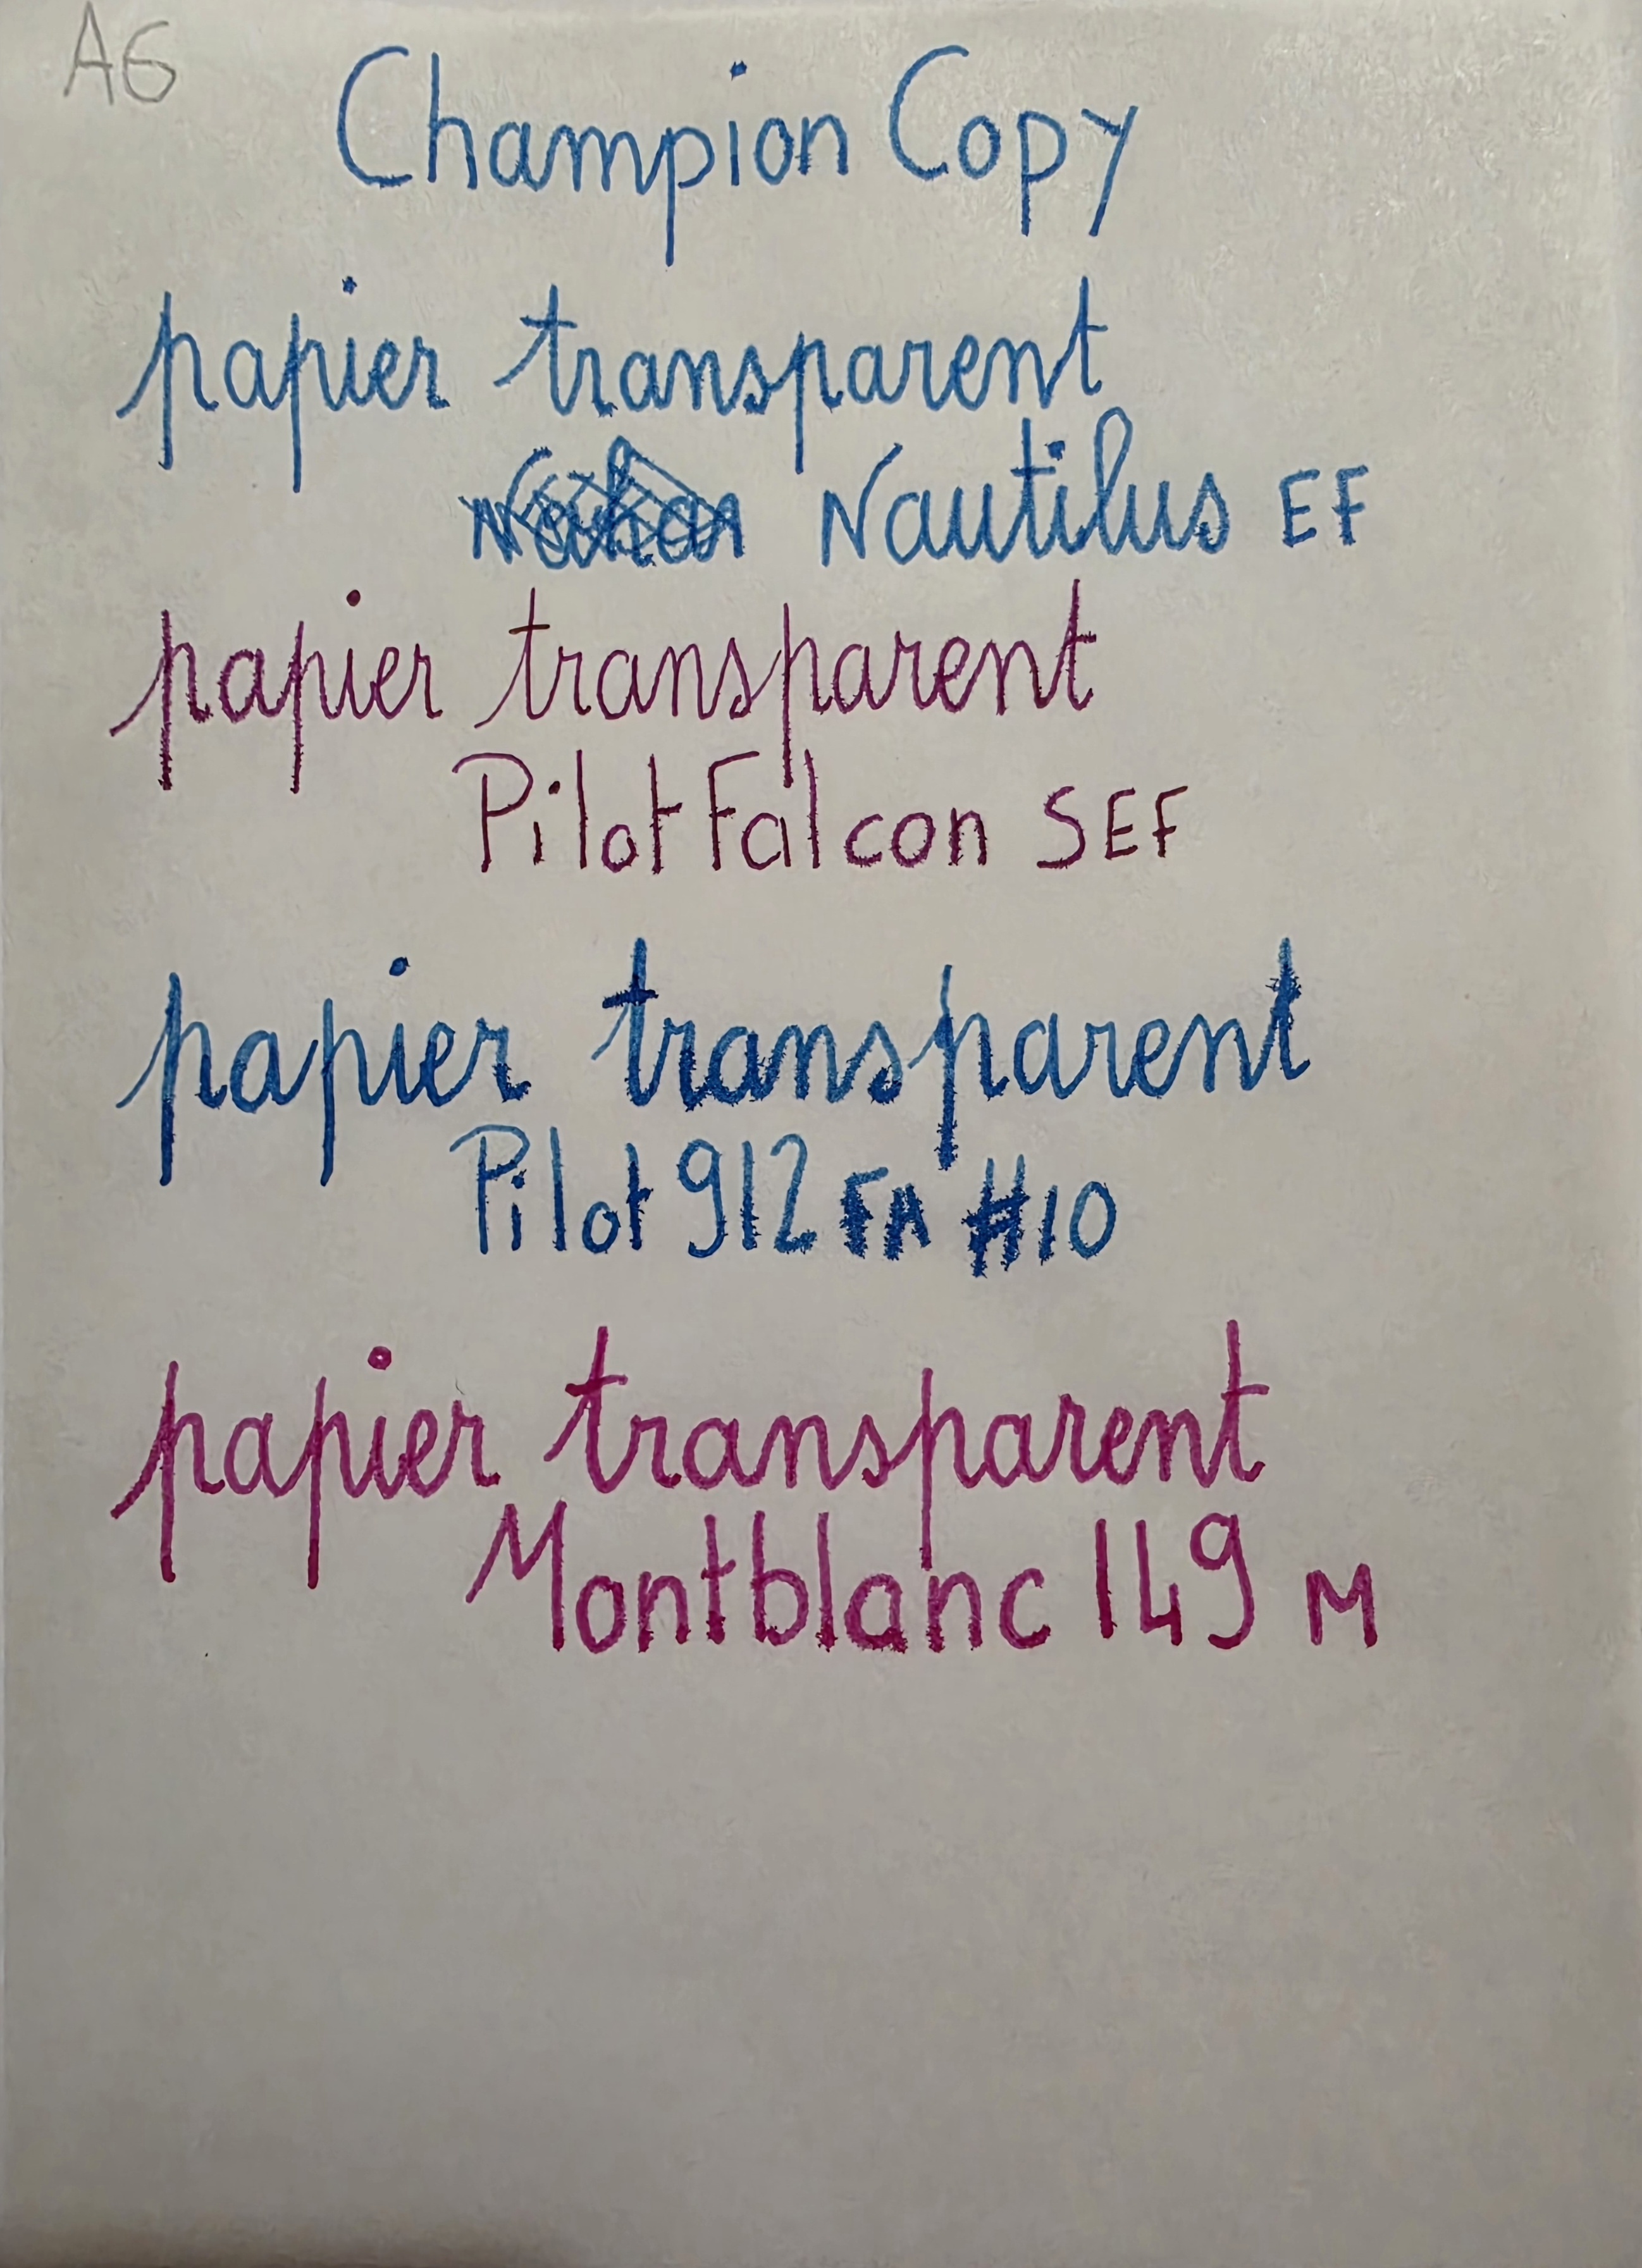 A6
Champion Copy
papier transparent
Nautilus EF
papier transparent
Pilot Falcon SEF
papier transparent
Pilot 912 FA #10
papier transparent
Montblanc 149 M